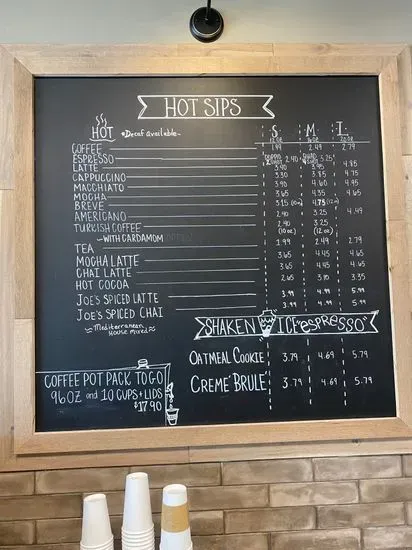 HOT SIPS
HOT *Decaf available~ S M L
12oz 16oz 20oz
COFFEE 1.99 2.49 2.79
ESPRESSO 2.40 3.25
LATTE 3.30 3.95 4.85
CAPPUCCINO 3.30 3.85 4.75
MACCHIATO 3.90 4.60 4.95
MOCHA 3.65 4.35 4.65
BREVE 3.15 (10oz) 4.75 (12oz)
AMERICANO 2.40 3.25 4.49
TURKISH COFFEE 2.40 (10oz) 3.25 (12oz)
~WITH CARDAMOM
TEA 1.99 2.49 2.79
MOCHA LATTE 3.65 4.45 4.65
CHAI LATTE 3.65 4.45 4.65
HOT COCOA 2.65 3.10 3.35
JOE'S SPICED LATTE 3.99 4.99 5.99
JOE'S SPICED CHAI 3.99 4.99 5.99
~Mediterranean
HOUSE MIXED~
SHAKEN ICE "ESPRESSO"
OATMEAL COOKIE 3.79 4.69 5.79
CREME' BRULE' 3.79 4.69 5.79
COFFEE POT PACK TO GO
96OZ and 10 CUPS + LIDS
$17.90